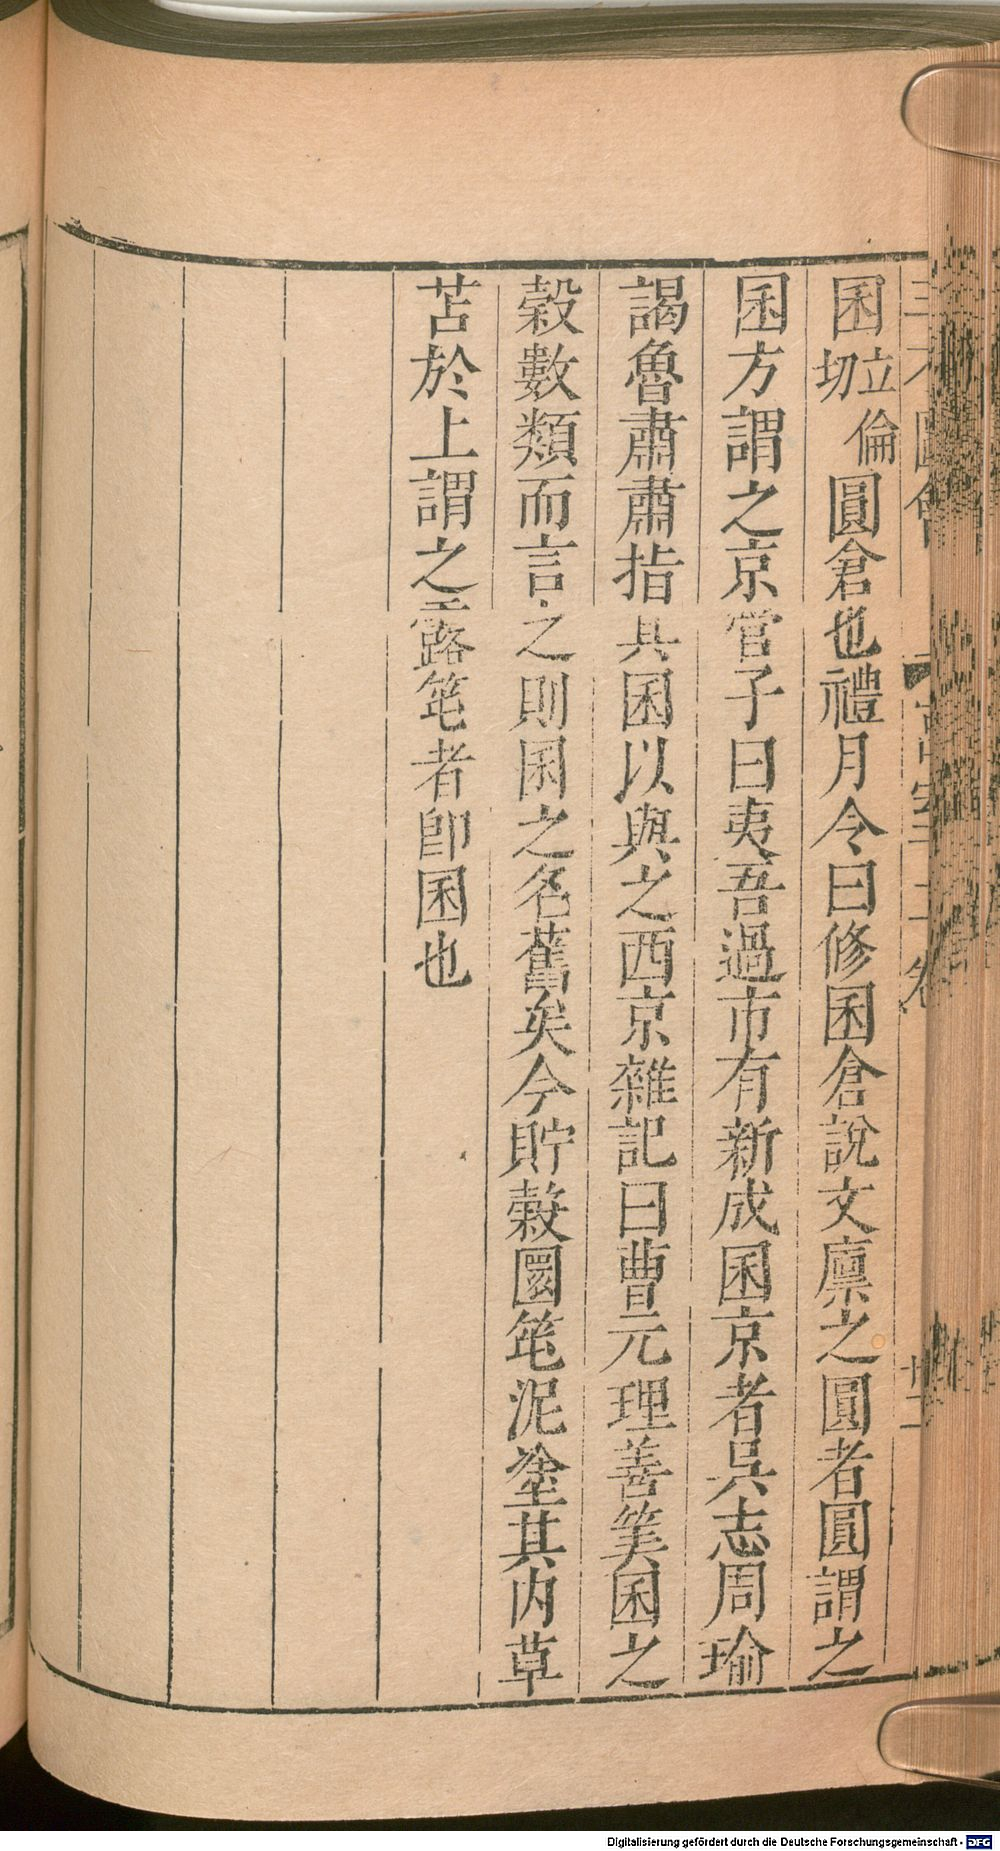 囷立倫切圓倉也禮月令曰修囷倉說文廩之圓者圓謂之
囷方謂之京管子曰夷吾過市有新成囷京者吳志周瑜
謁魯肅肅指其囷以與之西京雜記曰曹元理善筭囷之
穀數類而言之則囷之名舊矣今貯穀圜笔泥塗其内草
苫於上謂之露笔者即囷也
Digitalisierung gefördert durch die Deutsche Forschungsgemeinschaft - DFG